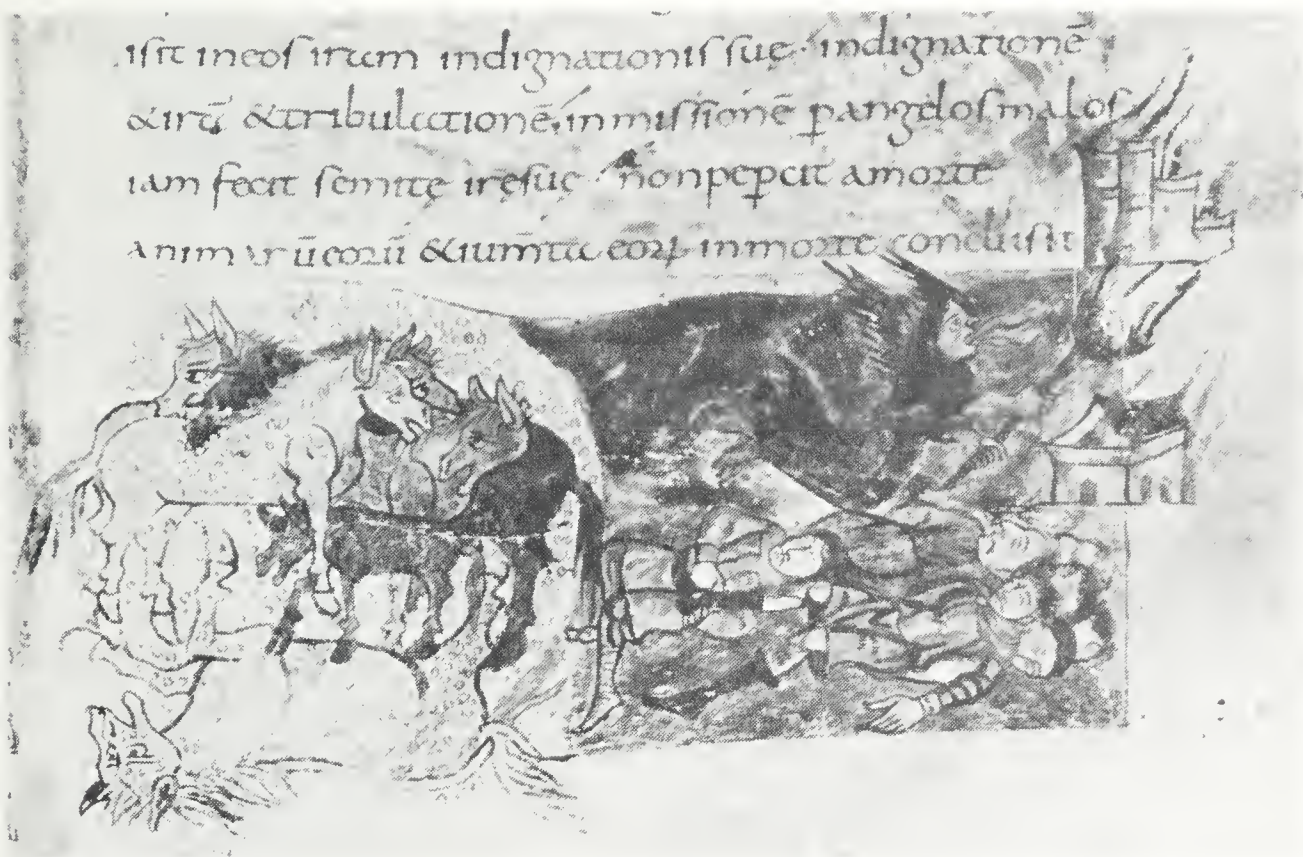 isit in eos iram indignationis suę indignationē
& irā & tribulationē, inmissionē p angelos malos
iam fecit semitę irę suę non pepcit a morte
animarū eorū & iumta eorꝝ in morte conclusit